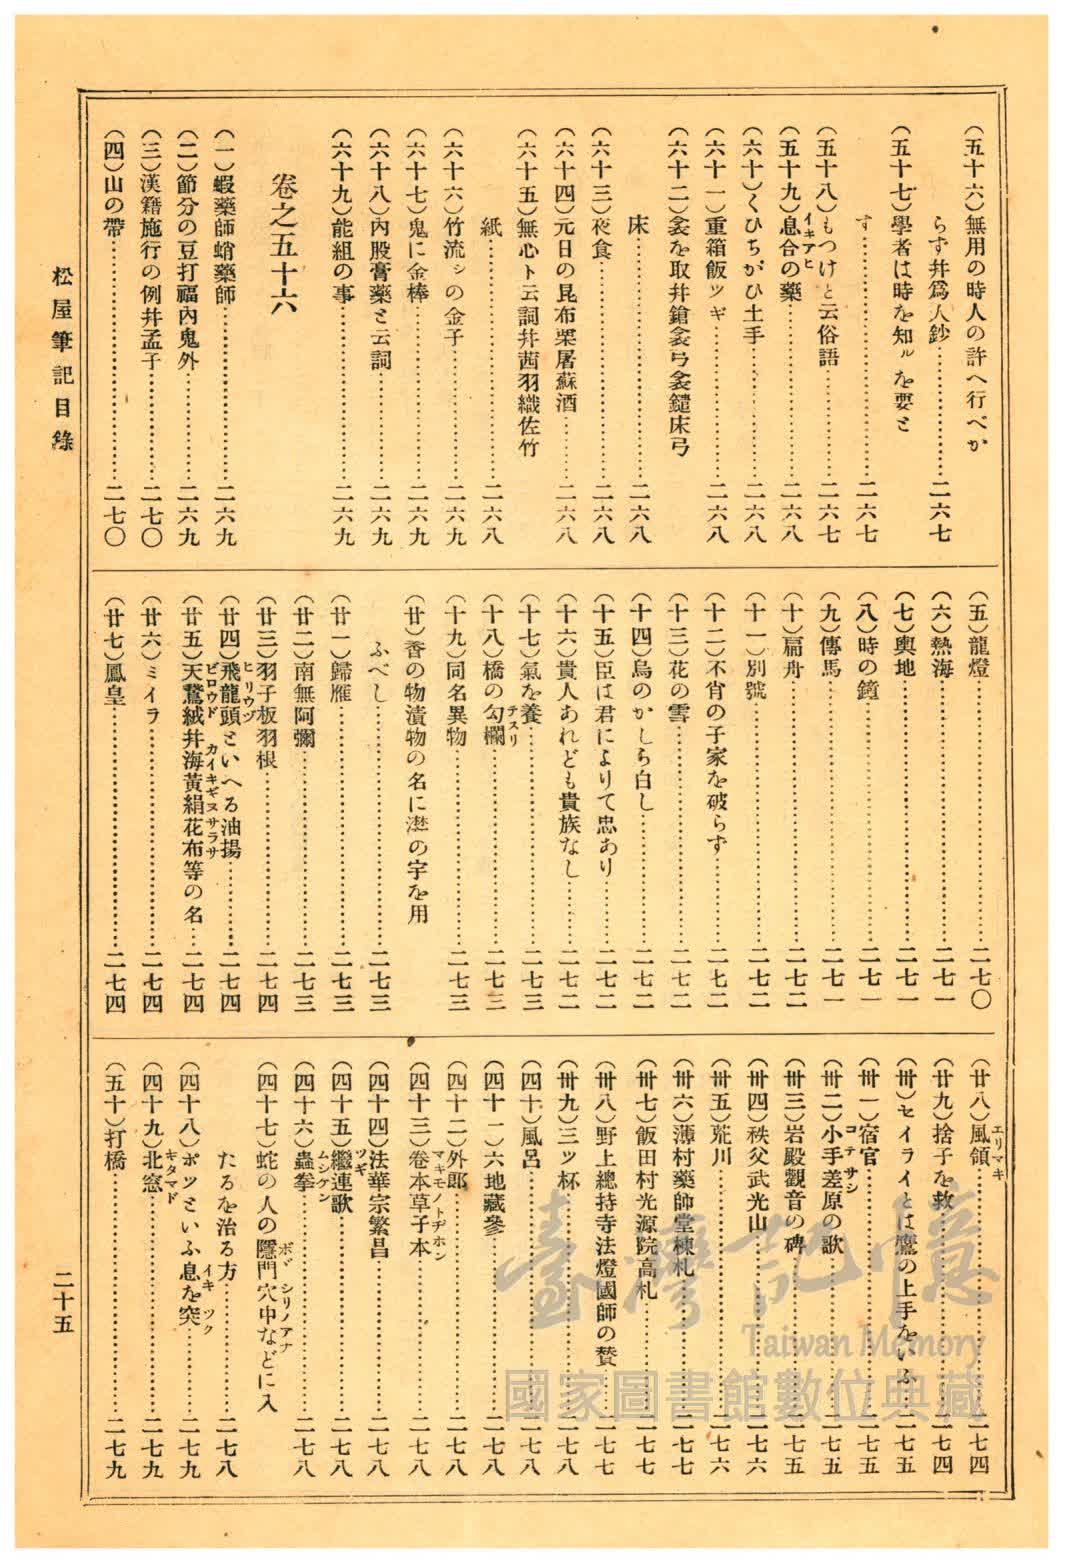 (五十六)無用の時人の許へ行べか
らず幷爲人鈔……………二六七
(五十七)學者は時を知ルを要と
す……………二六七
(五十八)もつけと云俗語……………二六七
(五十九)息合の藥……………二六八
イキアヒ
(六十)くひちがひ土手……………二六八
(六十一)重箱飯ツギ……………二六八
(六十二)衾を取幷鎗衾弓衾鑓床弓
床……………二六八
(六十三)夜食……………二六八
(六十四)元日の昆布栗屠蘇酒……………二六八
(六十五)無心ト云詞幷茜羽織佐竹
紙……………二六八
(六十六)竹流シの金子……………二六九
(六十七)鬼に金棒……………二六九
(六十八)內股膏藥と云詞……………二六九
(六十九)能組の事……………二六九
卷之五十六
(一)蝦藥師蛸藥師……………二六九
(二)節分の豆打福內鬼外……………二六九
(三)漢籍施行の例幷孟子……………二七〇
(四)山の帶……………二七〇
(五)龍燈……………二七〇
(六)熱海……………二七一
(七)輿地……………二七一
(八)時の鐘……………二七一
(九)傳馬……………二七一
(十)扁舟……………二七二
(十一)別號……………二七二
(十二)不肖の子家を破らず……………二七二
(十三)花の雪……………二七二
(十四)烏のかしら白し……………二七二
(十五)臣は君によりて忠あり……………二七二
(十六)貴人あれども貴族なし……………二七二
(十七)氣を養……………二七三
(十八)橋の勾欄……………二七三
テスリ
(十九)同名異物……………二七三
(廿)香の物漬物の名に濨の字を用
ふべし……………二七三
(廿一)歸雁……………二七三
(廿二)南無阿彌……………二七三
(廿三)羽子板羽根……………二七四
(廿四)飛龍頭といへる油揚……………二七四
ヒリウヅ
(廿五)天鵞絨幷海黃絹花布等の名……………二七四
ビロウド カイキギヌサラサ
(廿六)ミイラ……………二七四
(廿七)鳳皇……………二七四
(廿八)風領……………二七四
エリマキ
(廿九)捨子を救……………二七四
(卅)セイライとは鷹の上手をいふ……………二七五
(卅一)宿官……………二七五
(卅二)小手差原の歌……………二七五
コテサシ
(卅三)岩殿觀音の碑……………二七五
(卅四)秩父武光山……………二七六
(卅五)荒川……………二七六
(卅六)薄村藥師堂棟札……………二七七
(卅七)飯田村光源院高札……………二七七
(卅八)野上總持寺法燈國師の贊……………二七七
(卅九)三ツ杯……………二七八
(四十)風呂……………二七八
(四十一)六地藏參……………二七八
(四十二)外郞……………二七八
(四十三)卷本草子本……………二七八
マキモノトヂホン
(四十四)法華宗繁昌……………二七八
(四十五)繼連歌……………二七八
ツギ
(四十六)蟲拳……………二七八
ムシケン
(四十七)蛇の人の隱門穴中などに入
ボヾ シリノアナ
たるを治る方……………二七八
(四十八)ポツといふ息を突……………二七九
イキ ツク
(四十九)北窓……………二七九
キタマド
(五十)打橋……………二七九
松屋筆記目錄
二十五
臺灣記憶
Taiwan Memory
國家圖書館數位典藏